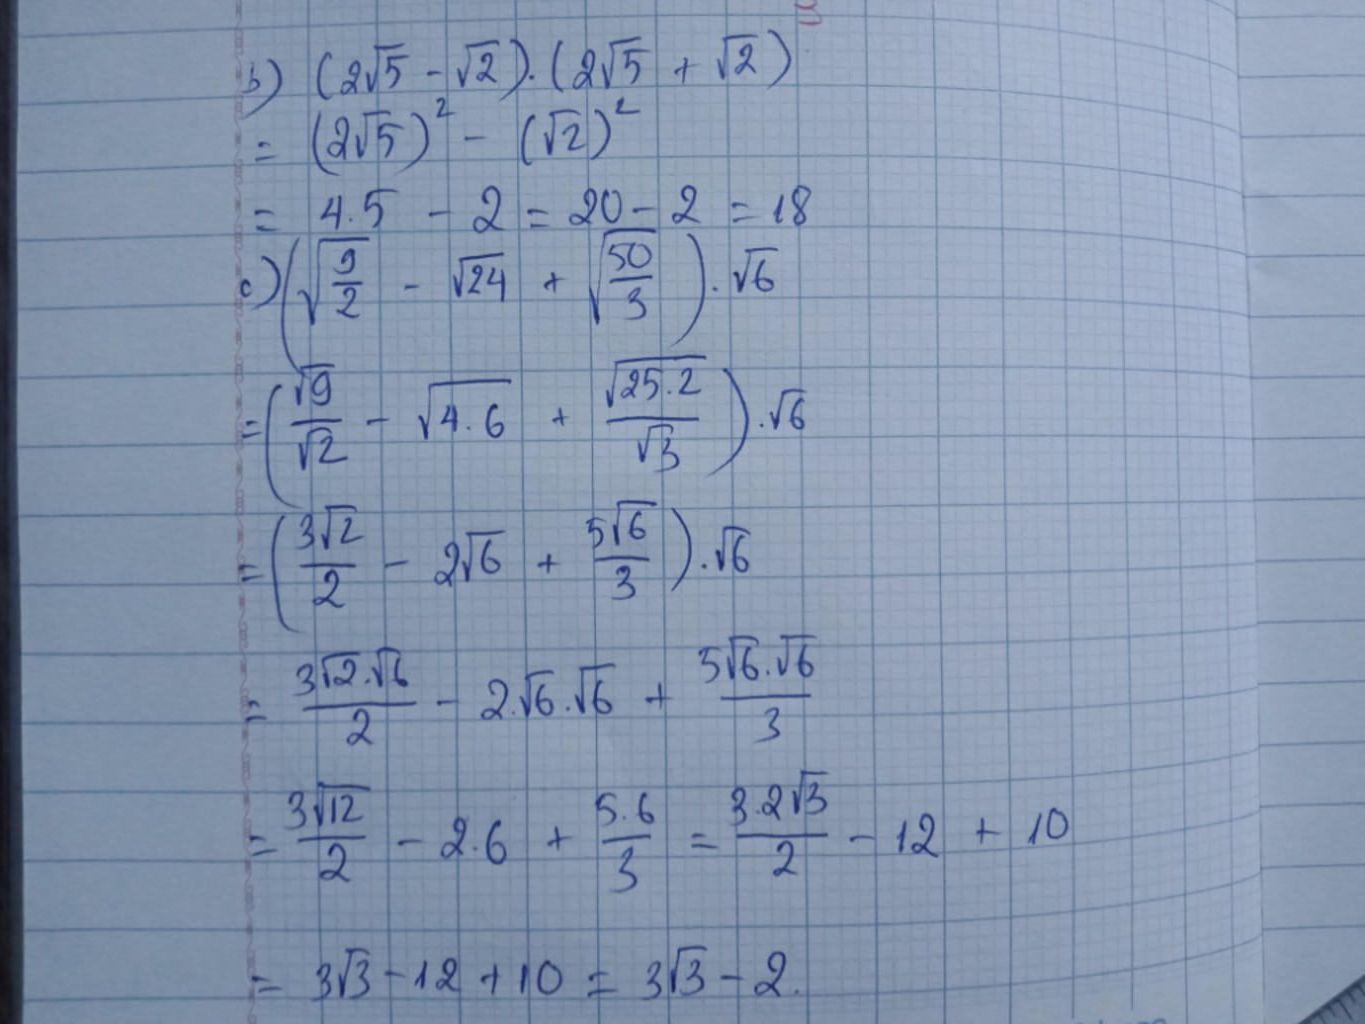 b) (2√5 - √2).(2√5 + √2)
= (2√5)² - (√2)²
= 4.5 - 2 = 20 - 2 = 18
c) (√(9/2) - √24 + √(50/3)).√6
= (√9/√2 - √(4.6) + √(25.2)/√3).√6
= (3√2/2 - 2√6 + 5√6/3).√6
= 3√2.√6/2 - 2.√6.√6 + 5√6.√6/3
= 3√12/2 - 2.6 + 5.6/3 = 3.2√3/2 - 12 + 10
= 3√3 - 12 + 10 = 3√3 - 2.